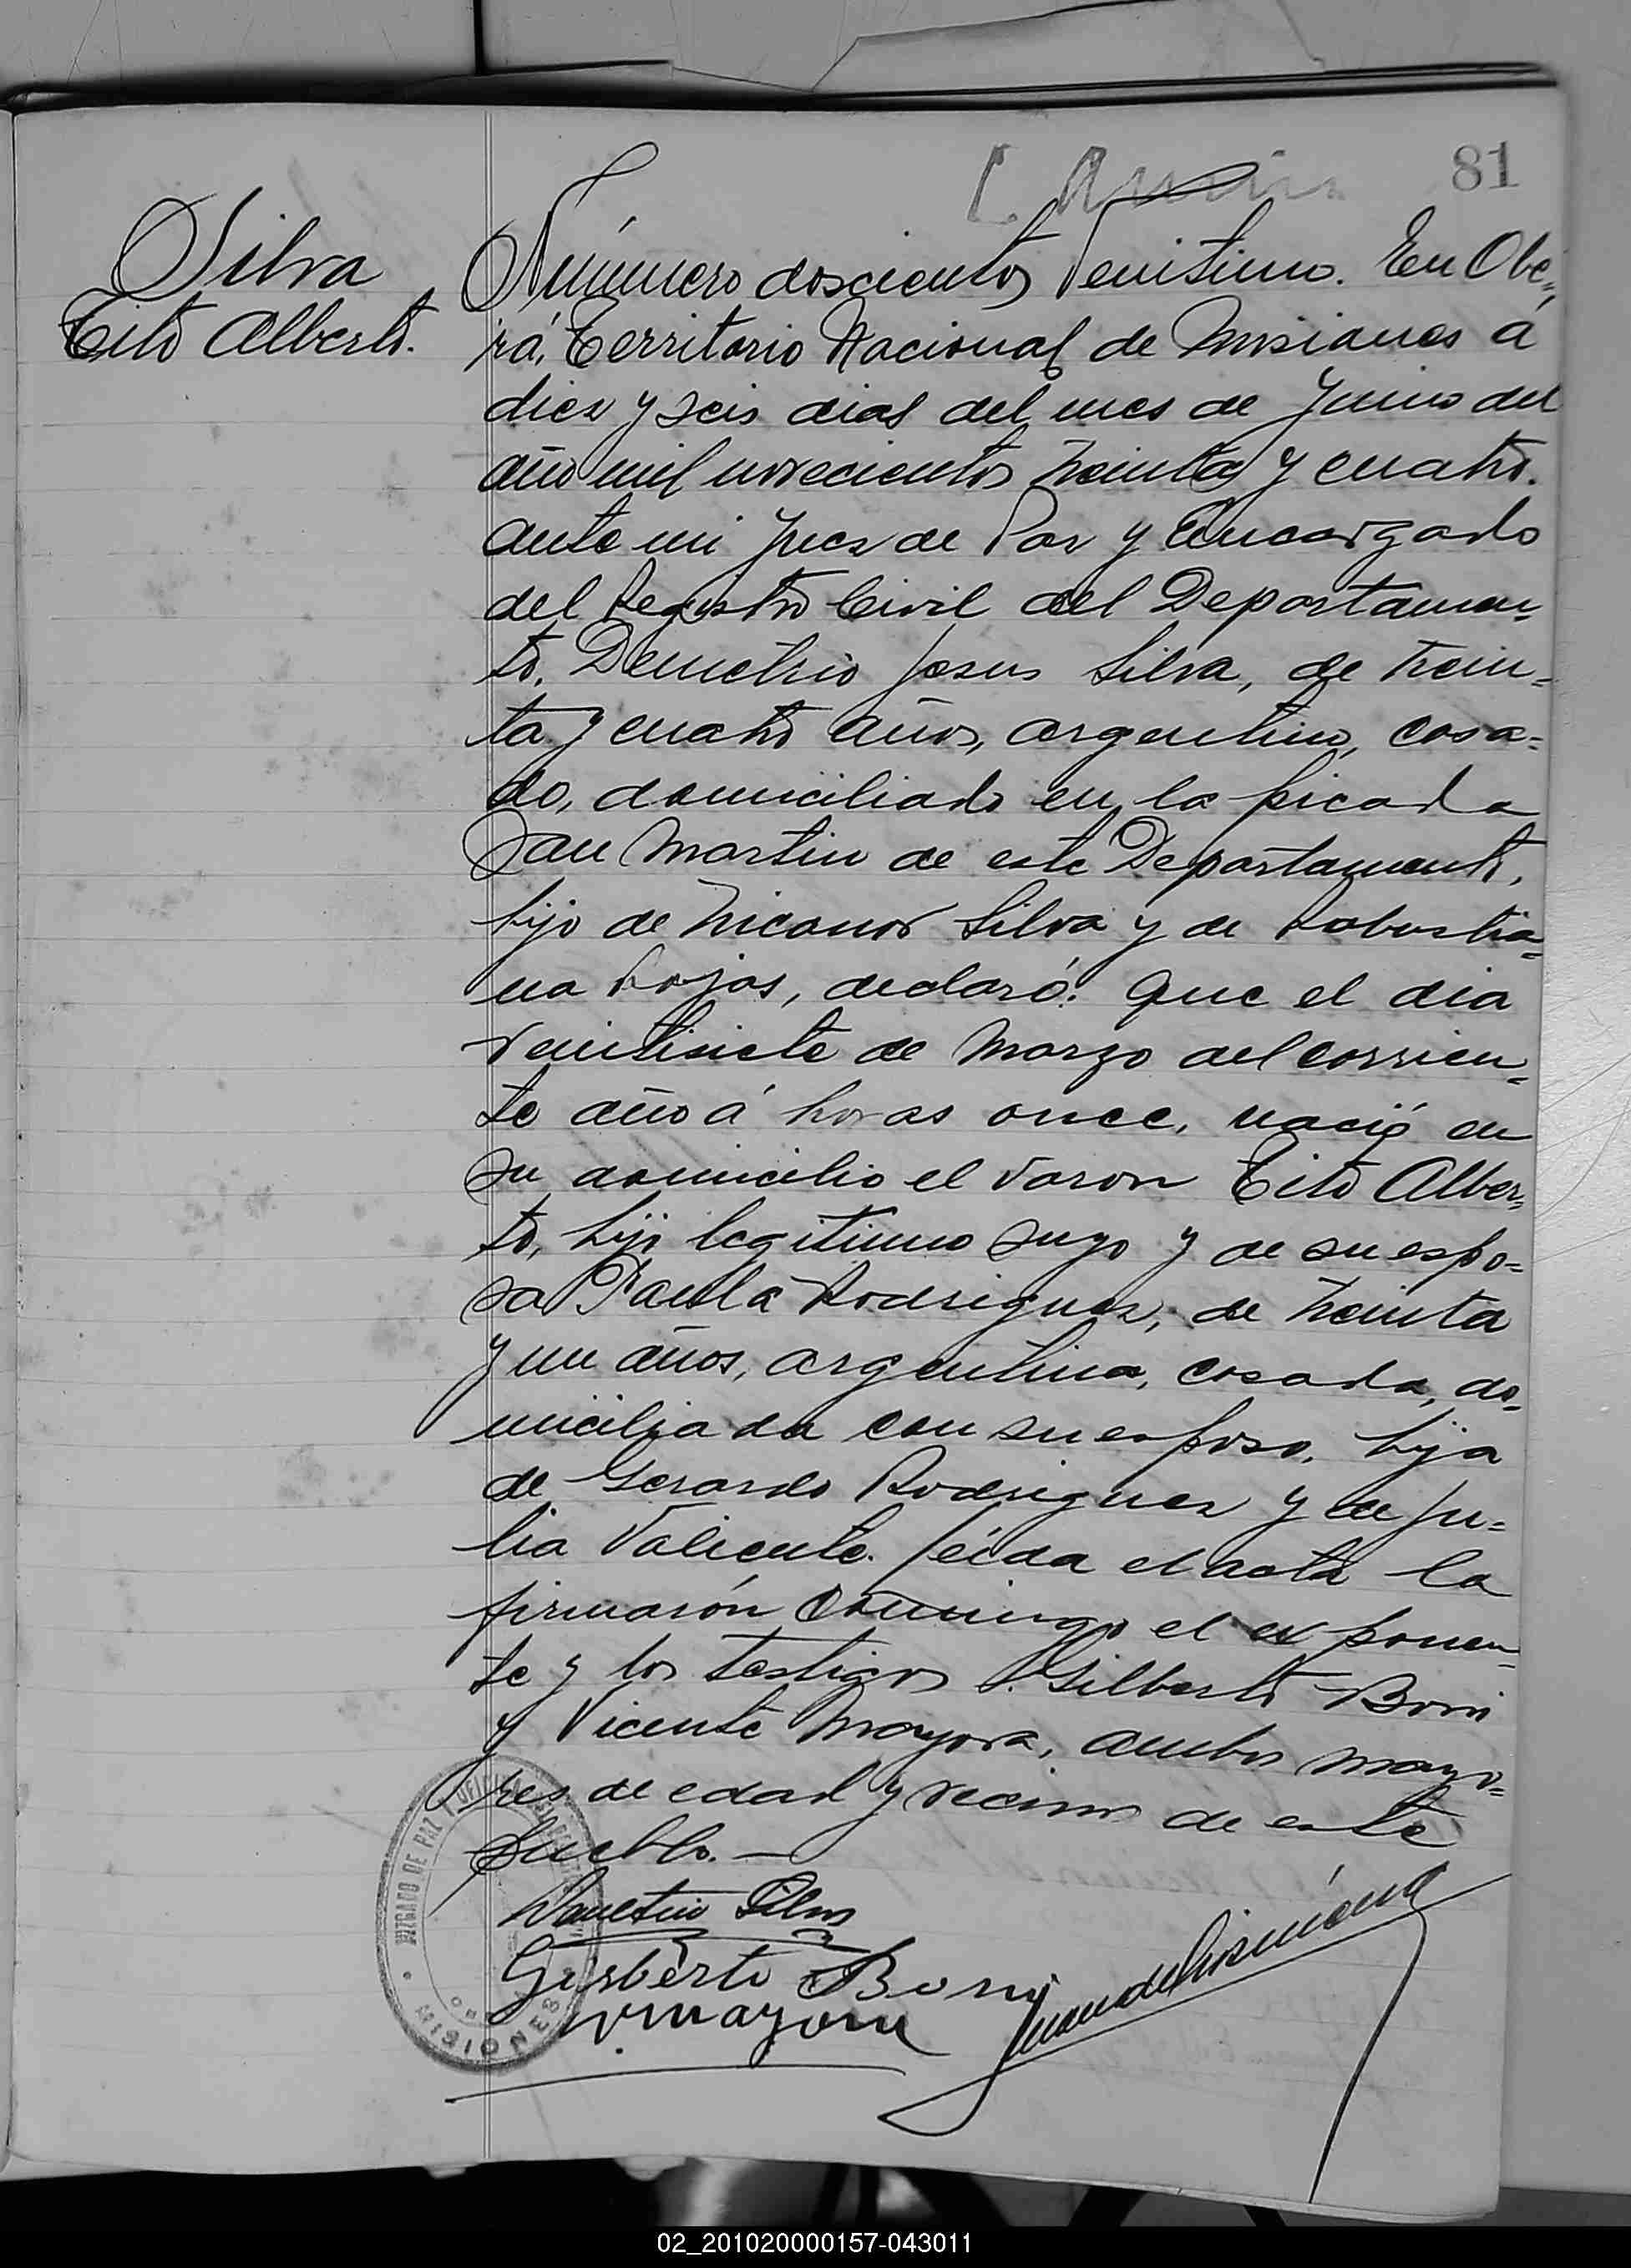 81
Silva
Tito Alberto.
Número doscientos Venitiuno. En Obe=
rá, Territorio Nacional de Misiones á
diez y seis dias del mes de Junio del
año mil novecientos treinta y cuatro.
ante mi Juez de Paz y Encargado
del Registro Civil del Departamen=
to, Demetrio Jesus Silva, de trein=
ta y cuatro años, argentino, casa=
do, domiciliado en la picada
San Martin de este Departamento,
hijo de Nicanor Silva y de Robustia=
na Rojas, declaró: Que el dia
veintisiete de Marzo del corrien=
te año á horas once, nació en
su domicilio el varon Tito Alber=
to, hijo legitimo suyo y de su espo=
sa Paula Rodriguez, de treinta
y un años, argentina, casada, do=
miciliada con su esposo, hija
de Gerardo Rodriguez y de Ju=
lia Valiente. Leida el acta la
firmarón conmigo el exponen=
te y los testigos Gilberto Boni
y Vicente Mayora, ambos mayo=
res de edad y vecinos de este
pueblo. —
Demetrio Silva
Gisberto Boni
V. Mayora
JUZGADO DE PAZ
MISIONES
02_201020000157-043011